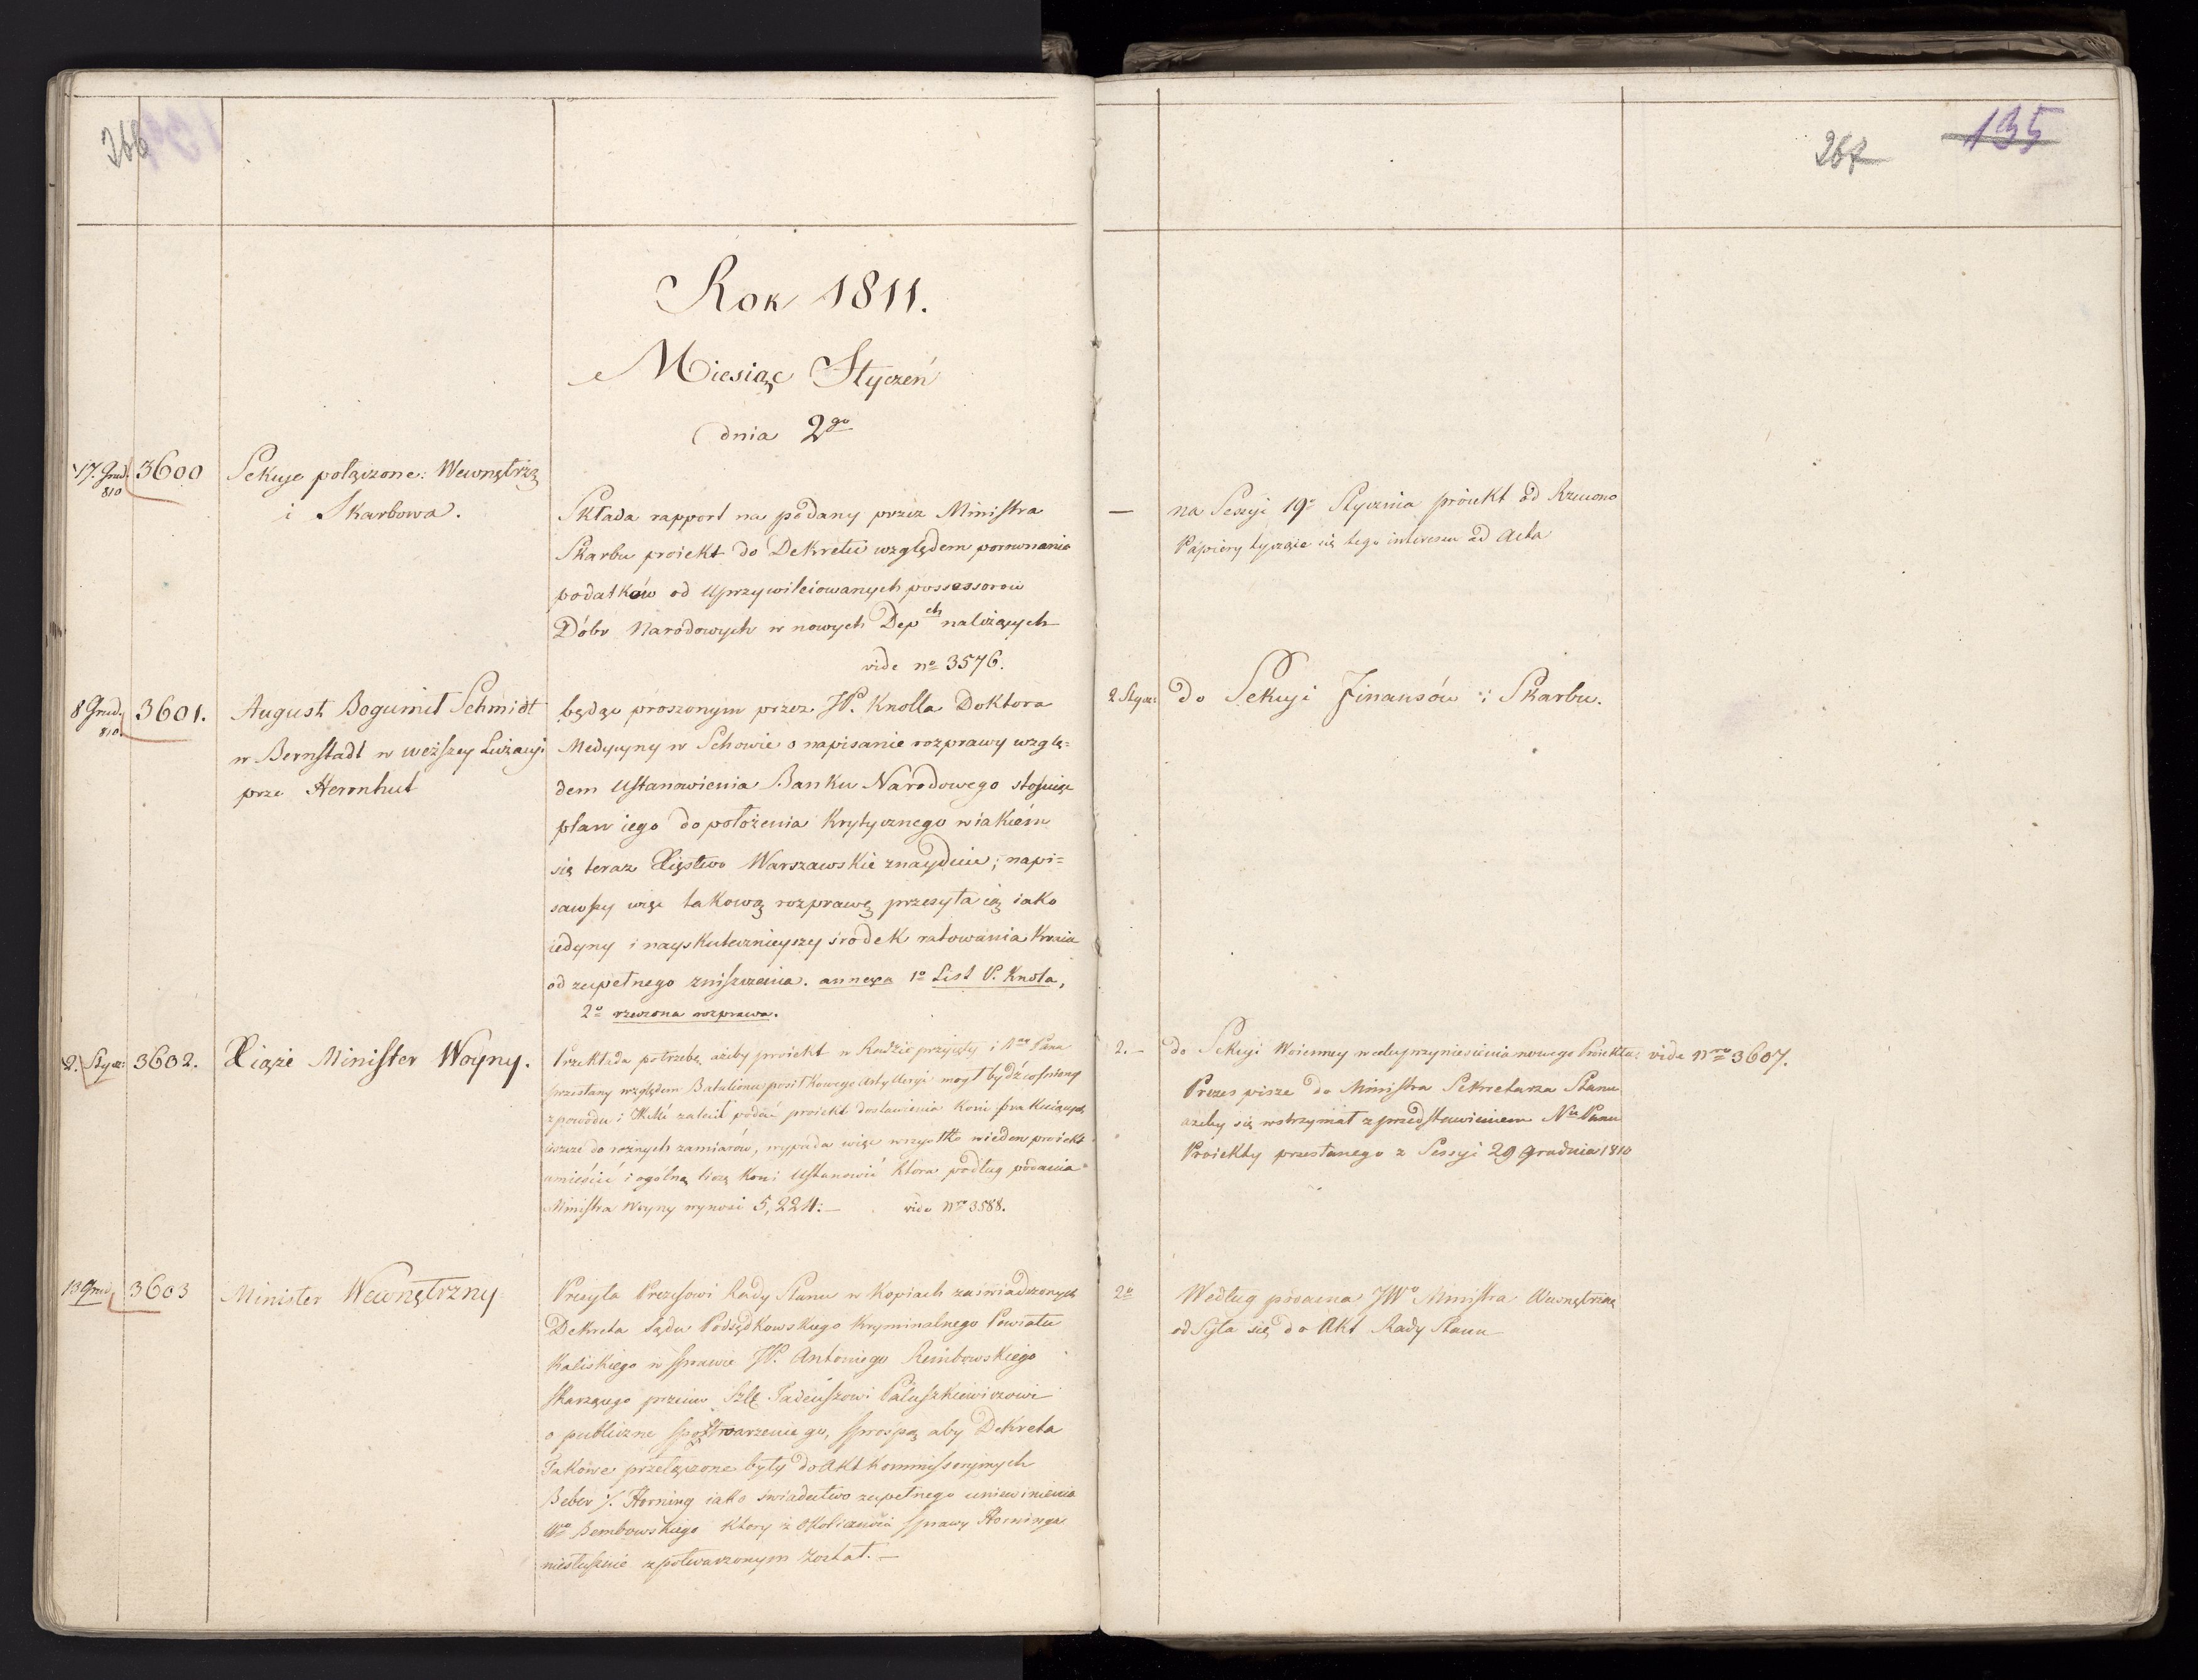 266
267
135
Rok 1811.
Miesiąc Styczeń
dnia 2go
17. Grud. 810
3600
Sekcye połączone: Wewnętrzą
i Skarbowa.
Składa rapport na podany przez Ministra
Skarbu proiekt do Dekretu względem porównania
podatków od uprzywileiowanych possessorow
Dóbr Narodowych w nowych Depch należących
vide no 3576.
—
na Sessyi 19o Stycznia proiekt od Rzucono
Papiery tyczące się tego interesu ad Acta
8 Grud. 810
3601.
August Bogumił Schmidt
w Bernstadt w weższey Luzacyi
prze Herrnhut
będąc proszonym przez JP. Knolla Doktora
Medycyny w Schowie o napisanie rozprawy wzglę=
dem Ustanowienia Banku Narodowego stosuiąc
plan iego do położenia krytycznego w iakiém
się teraz Xięstwo Warszawskie znayduie; napi=
sawszy więc takową rozprawę przesyła ią iako
iedyny i nayskutecznieyszy środek ratowania Kraiu
od zupełnego zniszczenia. annexa 1o List P. Knola,
2o rzeczona rozprawa.
2 Stycz:
do Sekcyi Finansów i Skarbu.
2. Stycz:
3602.
Xiąże Minister Woyny.
Przekłada potrzebę ażeby proiekt w Radzie przyięty i Nmu Panu
przesłany względem Batalionu posiłkowego Artylleryi mogł bydź cofniony
z powodu i zalecił podać proiekt dostawienia Koni
ieszcze do rożnych zamiarów, wypada więc wszystko w ieden proiekt
umieścić i ogólną liczę Koni Ustanowić która podług podania
Ministra Woyny wynosi 5,224:— vide Nro 3588.
2.—
do Sekcyi Woienney w celu przyniesienia nowego Proiektu
Prezes pisze do Ministra Sekretarza Stanu
ażeby się wstrzymał z przedstawieniem Nu Panu
Proiekty przesłanego z Sessyi 29 Grudnia 1810
vide Nro 3607.
13 Grud
3603
Minister Wewnętrzny
Przesyła Prezesowi Rady Stanu w Kopiach zaświadczonych
Dekreta Sądu Podsędkowskiego Kryminalnego Powiatu
Kaliskiego w sprawie JP. Antoniego Rembowskiego
skarżącego przeciw Szlc. Tadeuszowi Paluszkiewiczowi
o publiczne spotwarzenie go, s prośpą aby Dekreta
Takowe przełączone były do Akt Kommissoryinych
Beber /. Horning iako świadectwo zupełnego uniewinienia
Wo Bembowskiego który z Okoliczności sprawy Horninga
niesłusznie zpotwarzonym został.—
2o
Według podania JWo Ministra Wewnętrzne
odsyła się do Akt Rady Stanu